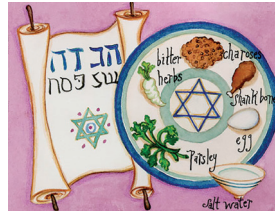 הגדה
של פסח
bitter
herbs
charoses
Shank bone
egg
Parsley
salt water